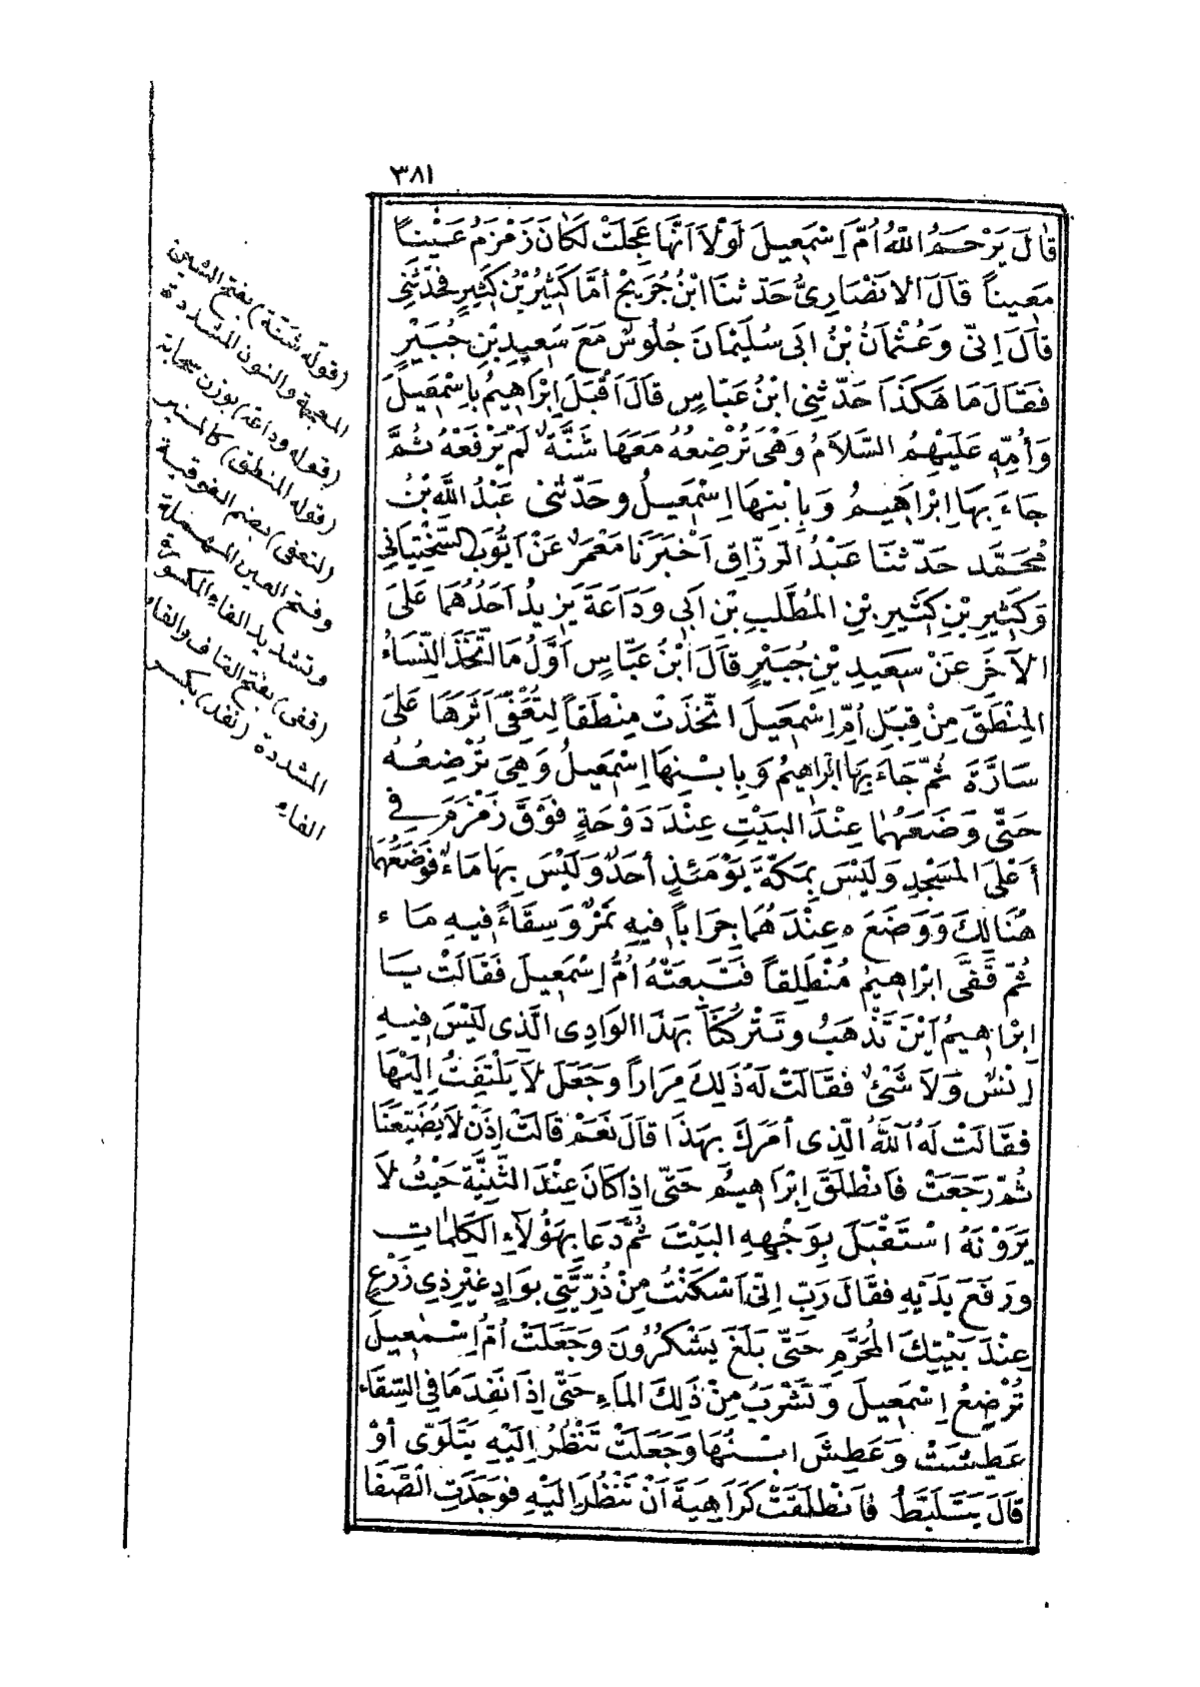 ٣٨١
قَالَ يَرْحَمُ اللّٰهُ أُمَّ اِسْمٰعِيلَ لَوْلَا اَنَّهَا عَجِلَتْ لَكَانَ زَمْزَمُ عَيْناً
مَعِيناً قَالَ الْاَنْصَارِىُّ حَدَّثنَا ابْنُ جُرَيْجٍ أمَّا كَثِيرُ بْنُ كَثِيرٍ فَحَدَّثَنِى
قَالَ اِنِّى وَعُثْمَانُ بْنُ ابَى سُلَيْمَانَ جُلُوسٌ مَعَ سَعِيدِ بْنِ جُبَيْرٍ
فَقَالَ مَا هَكَذَا حَدَّثَنِى ابْنُ عَبَّاسٍ قَالَ اَقْبَلَ اِبْرٰاهِيمُ بِاِسْمٰعِيلَ
وَأُمِّهِ عَلَيْهِمُ السَّلَامُ وَهْىَ تُرْضِعُهُ مَعَهَا شَنَّةٌ لَمْ يَرْفَعْهُ ثُمَّ
جَاءَ بِهَا اِبْرٰاهِيمُ وَبِابْنِهَا اِسْمٰعِيلُ وحَدَّثَنِى عَبْدُ اللّٰهِ بْنُ
مُحَمَّد حَدَّثنَا عَبْدُ الرَّزَّاقِ اَخْبَرَنَا مَعْمَرٌ عَنْ اَيُّوبَ السَّخْتِيَانِى
وَكَثِيرِ بْنِ كَثِيرِ بْنِ الْمُطَّلِبِ بْنِ اَبِى وَدَاعَةَ يَزِيدُ اَحَدُهُمَا عَلَىَ
الآخَرِ عَنْ سَعِيدِ بْنِ جُبَيْرٍ قَالَ ابْنُ عَبَّاسٍ اَوَّلُ مَا اتَّخَذَ النِّسَاءُ
الْمِنْطَقَ مِنْ قِبَلِ اُمِّ اِسْمٰعِيلَ اتَّخَذَتْ مِنْطَقاً لِتُعَفِّىَ اَثَرَهَا عَلىَ
سَارَّةَ ثُمَّ جَاءَ بِهَا ابْرٰاهِيمُ وَبِابْنِهَا اِسْمٰعِيلُ وَهِىَ تُرْضِعُهُ
حَتَّى وَضَعَهُمَا عِنْدَ الْبَيْتِ عِنْدَ دَوْحَةٍ فَوْقَ زَمْزَمَ فِى
أَعْلَى الْمَسْجِدِ وَلَيْسَ بِمَكَّةَ يَوْمَئِذٍ أَحَدٌ وَلَيْسَ بِهَا مَاءٌ فَوَضَعَهُمَا
هُنَالِكَ وَوَضَعَ عِنْدَهُمَا جِرَاباً فِيهِ تَمْرٌ وَسِقَاءً فِيهِ مَاء
ثُمَّ قَفَّى ابْرٰاهِيمُ مُنْطَلِقاً فَتَبِعَتْهُ اُمُّ اِسْمٰعِيلَ فَقَالَتْ يَا
اِبْرٰاهِيمُ اَيْنَ تَذْهَبُ وتَتْرُكُنَا بِهَذَا الوَادِى الَّذِى لَيْسَ فِيهِ
اِنْسٌ وَلَا شَىْءٌ فَقَالَتْ لَهُ ذَلِكَ مِرَاراً وَجَعَلَ لَا يَلْتَفِتُ اِلَيْهَا
فَقَالَتْ لَهُ آللّٰهُ الَّذِى أَمَرَكَ بِهَذَا قَالَ نَعَمْ قَالَتْ اِذَنْ لَا يُضَيِّعَنَا
ثُمَّ رَجَعَتْ فَانْطَلَقَ اِبْرٰاهِيمُ حَتَّى اِذَا كَانَ عِنْدَ الثَّنِيَّةِ حَيْثُ لَا
يَرَوْنَهُ اسْتَقْبَلَ بِوَجْهِهِ الْبَيْتَ ثُمَّ دَعَا بِهَؤُلَاءِ الْكَلِمَاتِ
وَرَفَعَ يَدَيْهِ فَقَالَ رَبِّ اِنِّى اَسْكَنْتُ مِنْ ذُرِّيَّتِى بِوَادٍ غَيْرِ ذِى زَرْعٍ
عِنْدَ بَيْتِكَ الْمُحَرَّمِ حَتَّى بَلَغَ يَشْكُرُونَ وَجَعَلَتْ اُمُّ اِسْمٰعِيلَ
تُرْضِعُ اِسْمٰعِيلَ وَتَشْرَبُ مِنْ ذَلِكَ الْمَاءِ حَتَّى اِذَا نَفِدَ مَا فِى السِّقَاءِ
عَطِشَتْ وَعَطِشَ ابْنُهَا وَجَعَلَتْ تَنْظُرُ اِلَيْهِ يَتَلَوَّى أَوْ
قَالَ يَتَلَبَّطُ فَانْطَلَقَتْ كَرَاهِيَةَ اَنْ تَنْظُرَ اِلَيْهِ فَوَجَدَتِ الصَّفَا
(قوله شَنَّة) بفتح الشين
المعجمة والنون المشددة
(قوله وداعة) بوزن سحابة
(قوله المنطق) كالمنبر
(لتعفى) بضم الفوقية
وفتح العين المهملة
وتشديد الفاء المكسورة
(قفى) بفتح القاف والفاء
المشددة (نفد) بكسر
الفاء